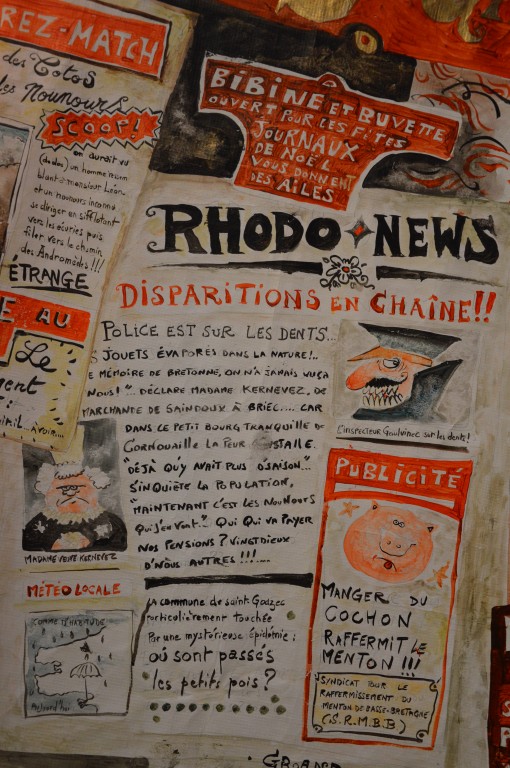 REZ-MATCH
des Totos
les Nounours
SCOOP!
on aurait vu
(dodos) un homme ressem
blant à monsieur Léon
et un nounours inconnu
se diriger en sifflotant
vers les écuries puis
filer vers le chemin
des Andromèdes!!!
ÉTRANGE
E AU
Le
ment
BIBINE ET BUVETTE
OUVERT POUR LES FÊTES
JOURNAUX
DE NOËL
VOUS DONNENT
DES AILES
RHODO NEWS
DISPARITIONS EN CHAÎNE!!
POLICE EST SUR LES DENTS...
JOUETS ÉVAPORÉS DANS LA NATURE!..
E MÉMOIRE DE BRETONNE, ON N'A JAMAIS VU ÇA
NOUS!"... DÉCLARE MADAME KERNEVEZ, DE
MARCHANTE DE SAINDOUX À BRIEC.... CAR
DANS CE PETIT BOURG TRANQUILLE DE
CORNOUAILLE LA PEUR S'INSTALLE.
"DÉJÀ QU'Y AVAIT PLUS D'SAISON..."
S'INQUIÈTE LA POPULATION,
"MAINTENANT C'EST LES NOUNOURS
QUI S'EN VONT." QUI QUI VA PAYER
NOS PENSIONS? VINGT DIEUX
D'NOUS AUTRES!!!....
L'INSPECTEUR Goulvinec sur les dents!
MADAME VEUVE KERNEVEZ
MÉTÉO LOCALE
COMME D'HABITUDE
Aujourd'hui
LA COMMUNE DE SAINT-Goazec
particulièrement touchée
Par une mystérieuse épidémie:
où sont passés
les petits pois?
PUBLICITÉ
MANGER DU
COCHON
RAFFERMIT LE
MENTON!!!
SYNDICAT POUR LE
RAFFERMISSEMENT DU
MENTON DE BASSE-BRETAGNE
(S.R.M.B.B)